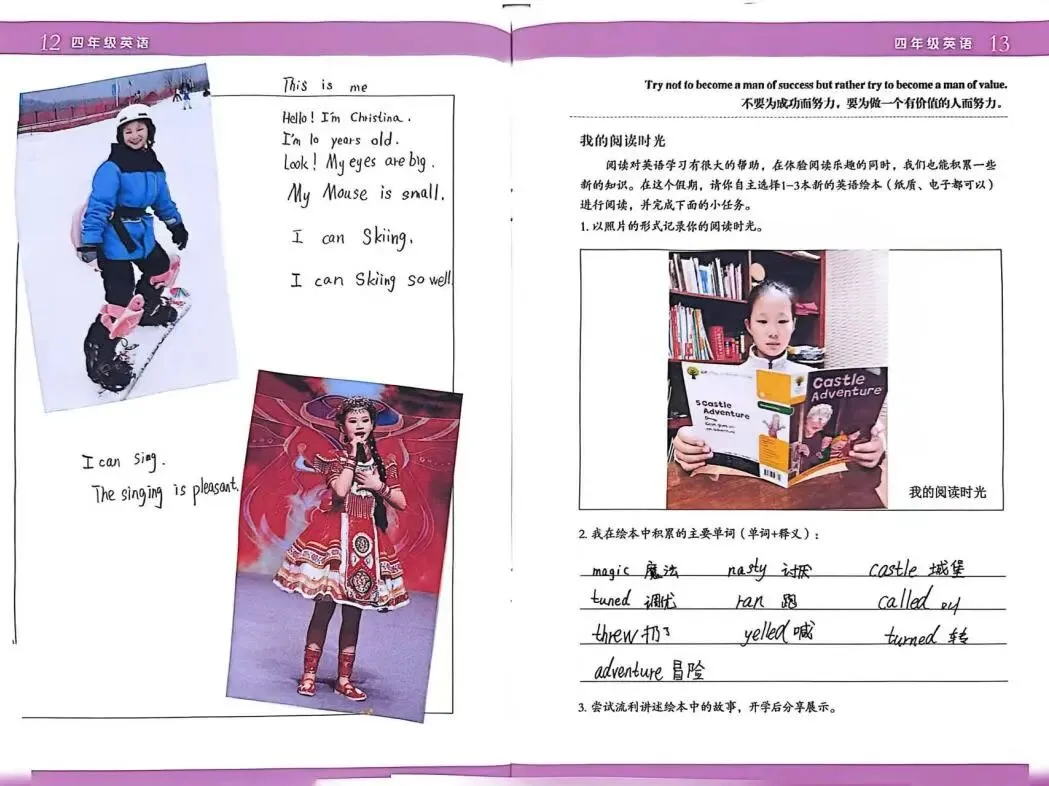 12 四年级英语
This is me
Hello! I'm Christina.
I'm 10 years old.
Look! My eyes are big.
My Mouse is small.
I can Skiing.
I can Skiing so well.
I can sing.
The singing is pleasant.
四年级英语 13
Try not to become a man of success but rather try to become a man of value.
不要为成功而努力，要为做一个有价值的人而努力。
我的阅读时光
阅读对英语学习有很大的帮助，在体验阅读乐趣的同时，我们也能积累一些
新的知识。在这个假期，请你自主选择1-3本新的英语绘本（纸质、电子都可以）
进行阅读，并完成下面的小任务。
1. 以照片的形式记录你的阅读时光。
5 Castle
Adventure
Castle
Adventure
我的阅读时光
2. 我在绘本中积累的主要单词（单词+释义）：
magic 魔法 nasty 讨厌 castle 城堡
tuned 调优 ran 跑 called 叫
threw 扔了 yelled 喊 turned 转
adventure 冒险
3. 尝试流利讲述绘本中的故事，开学后分享展示。